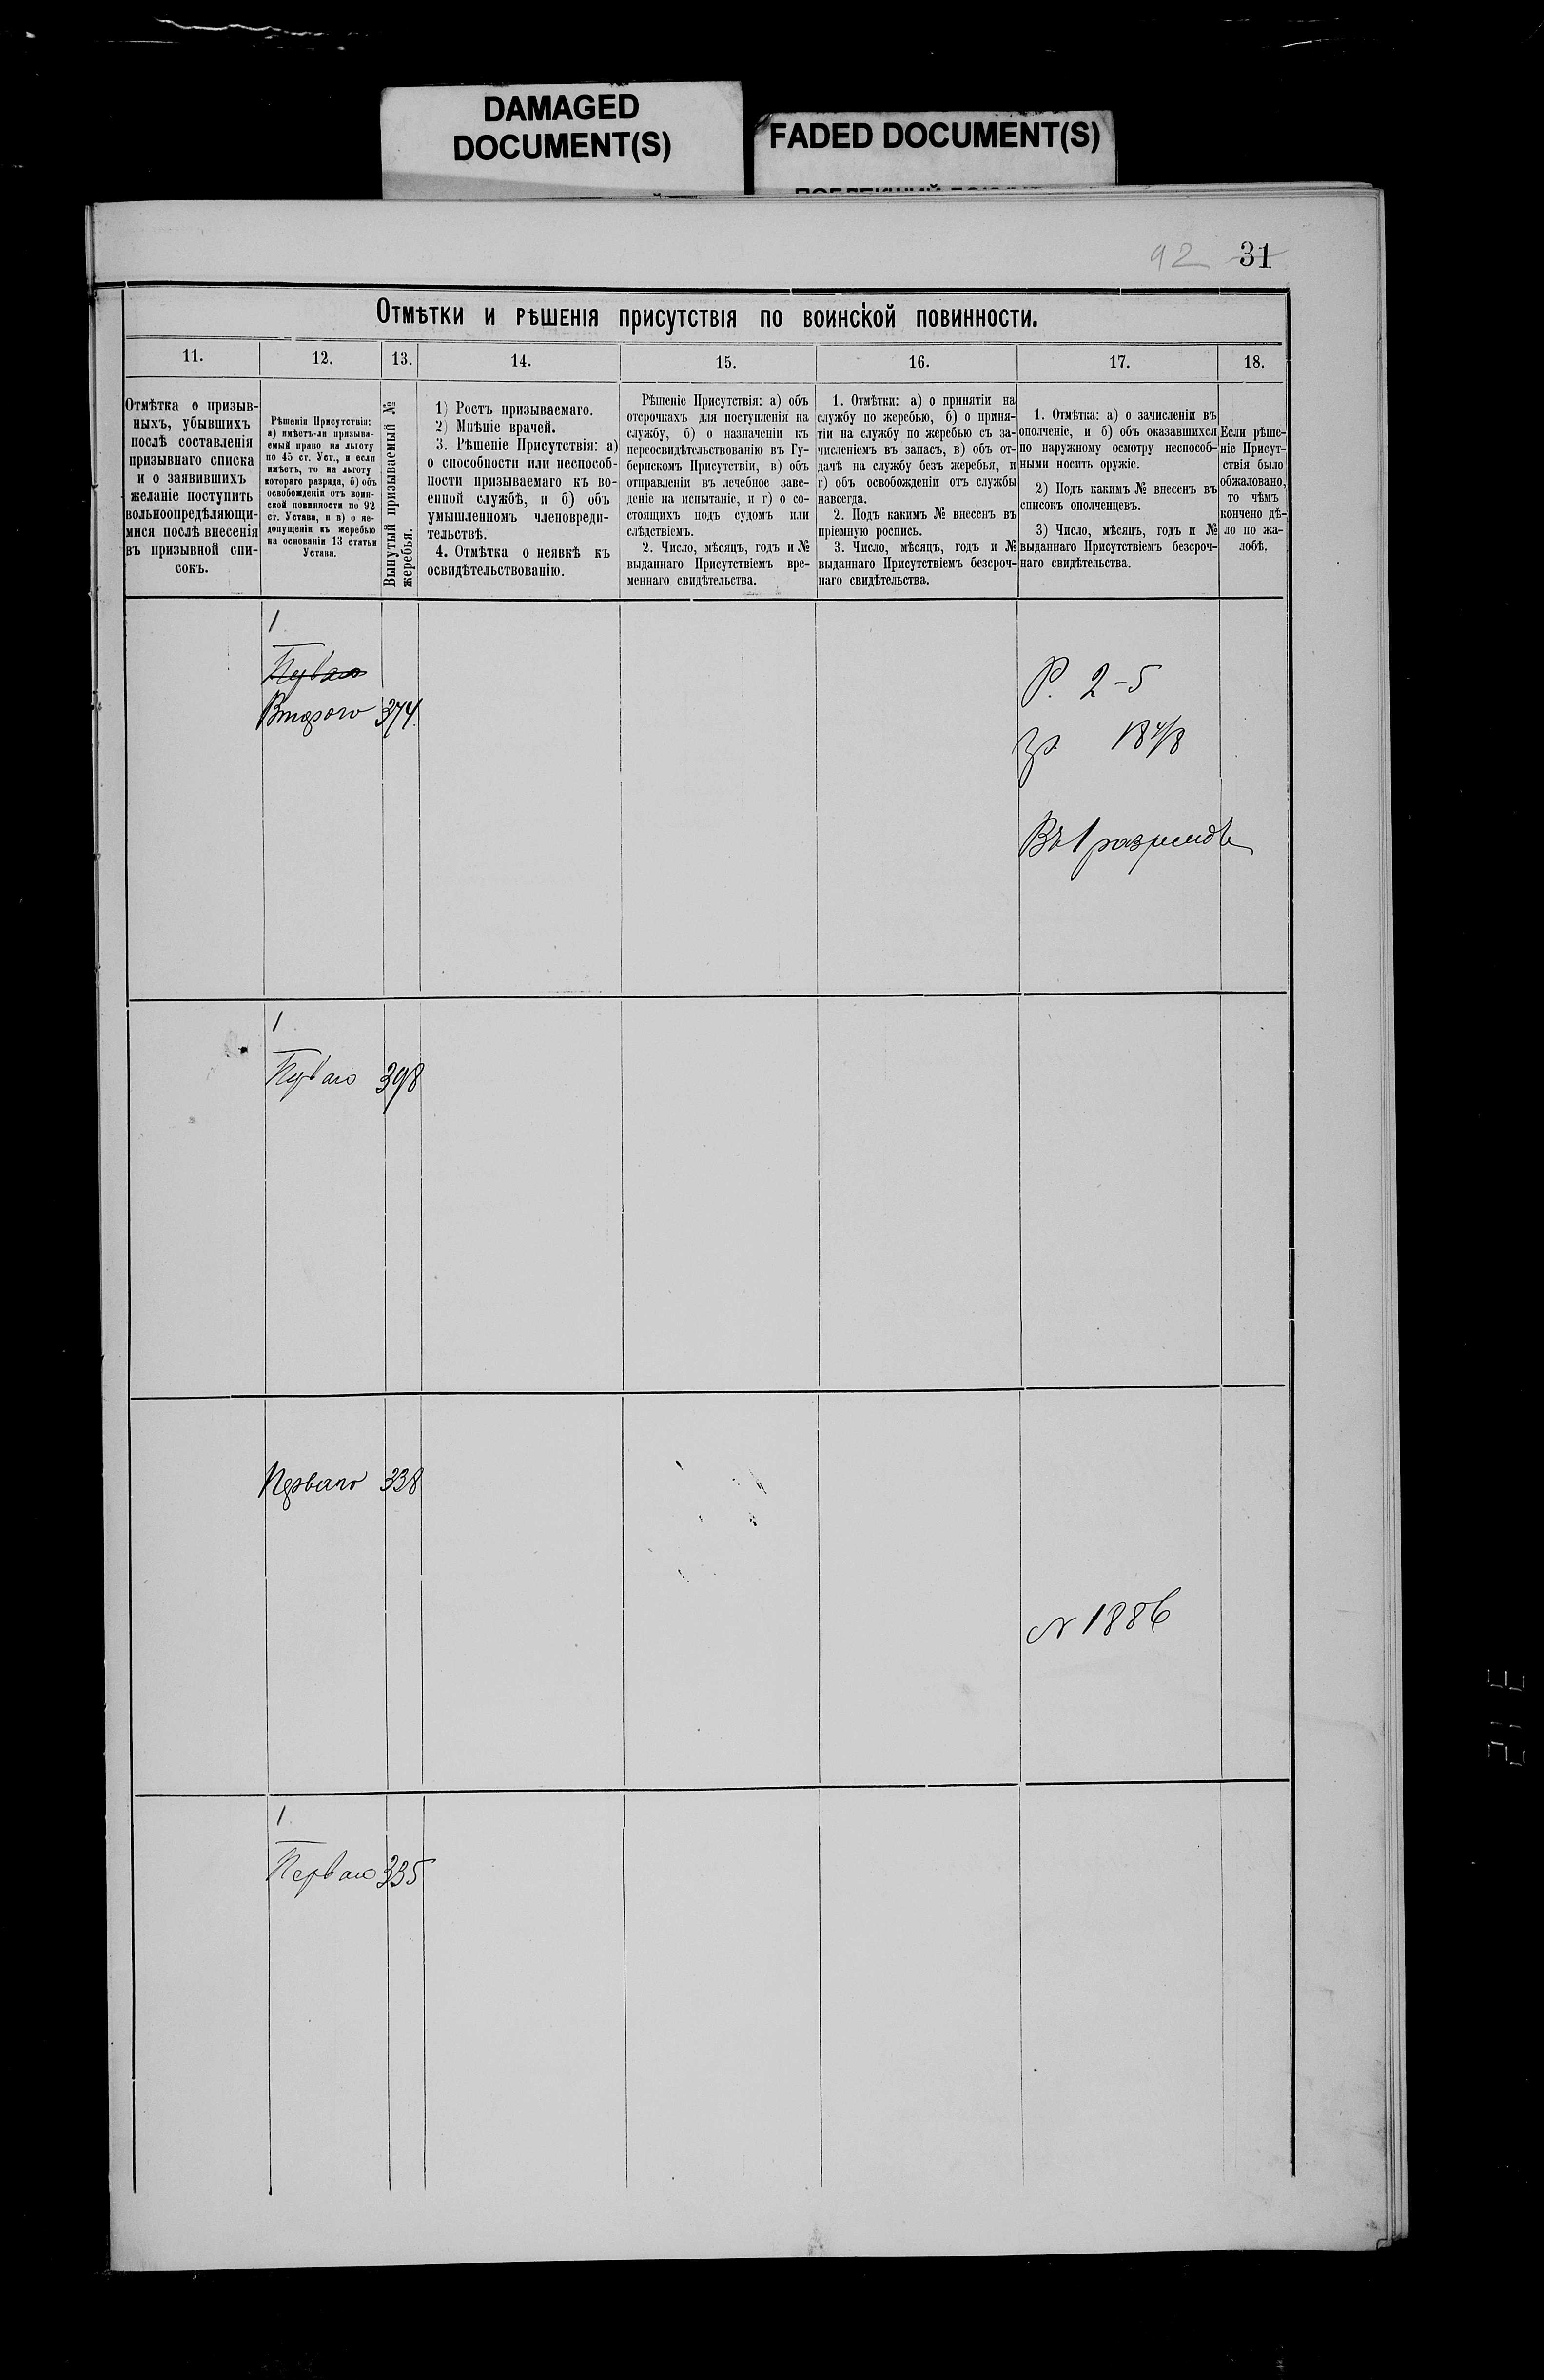 DAMAGED
DOCUMENT(S)
FADED DOCUMENT(S)
92 31
Отмѣтки и рѣшенія присутствія по воинской повинности.
11. 12. 13. 14. 15. 16. 17. 18.
Отмѣтка о призыв-
ныхъ, убывшихъ
послѣ составленія
призывнаго списка
и о заявившихъ
желаніе поступить
вольноопредѣляющи-
мися послѣ внесенія
въ призывной спи-
сокъ.
Рѣшенія Присутствія:
а) имѣетъ-ли призыва-
емый право на льготу
по 45 ст. Уст., и если
имѣетъ, то на льготу
котораго разряда, б) объ
освобожденіи отъ воин-
ской повинности по 92
ст. Устава, и в) о не-
допущеніи къ жеребью
на основаніи 13 статьи
Устава.
Вынутый призываемый №
жеребья.
1) Ростъ призываемаго.
2) Мнѣніе врачей.
3. Рѣшеніе Присутствія: а)
о способности или неспособ-
ности призываемаго къ во-
енной службѣ, и б) объ
умышленномъ членовреди-
тельствѣ.
4. Отмѣтка о неявкѣ къ
освидѣтельствованію.
Рѣшеніе Присутствія: а) объ
отсрочкахъ для поступленія на
службу, б) о назначеніи къ
переосвидѣтельствованію въ Гу-
бернскомъ Присутствіи, в) объ
отправленіи въ лечебное заве-
деніе на испытаніе, и г) о со-
стоящихъ подъ судомъ или
слѣдствіемъ.
2. Число, мѣсяцъ, годъ и №
выданнаго Присутствіемъ вре-
меннаго свидѣтельства.
1. Отмѣтки: а) о принятіи на
службу по жеребью, б) о приня-
тіи на службу по жеребью съ за-
численіемъ въ запасъ, в) объ от-
дачѣ на службу безъ жеребья, и
г) объ освобожденіи отъ службы
навсегда.
2. Подъ какимъ № внесенъ въ
пріемную роспись.
3. Число, мѣсяцъ, годъ и №
выданнаго Присутствіемъ безсроч-
наго свидѣтельства.
1. Отмѣтка: а) о зачисленіи въ
ополченіе, и б) объ оказавшихся
по наружному осмотру неспособ-
ными носить оружіе.
2) Подъ какимъ № внесенъ въ
списокъ ополченцевъ.
3) Число, мѣсяцъ, годъ и №
выданнаго Присутствіемъ безсроч-
наго свидѣтельства.
Если рѣше-
ніе Присут-
ствія было
обжаловано,
то чѣмъ
кончено дѣ-
ло по жа-
лобѣ.
1
Перваго
Второго 374
Р. 2-5
Въ 1 разрядѣ
1
Перваго 398
Перваго 338
N 1886
1
Перваго 335